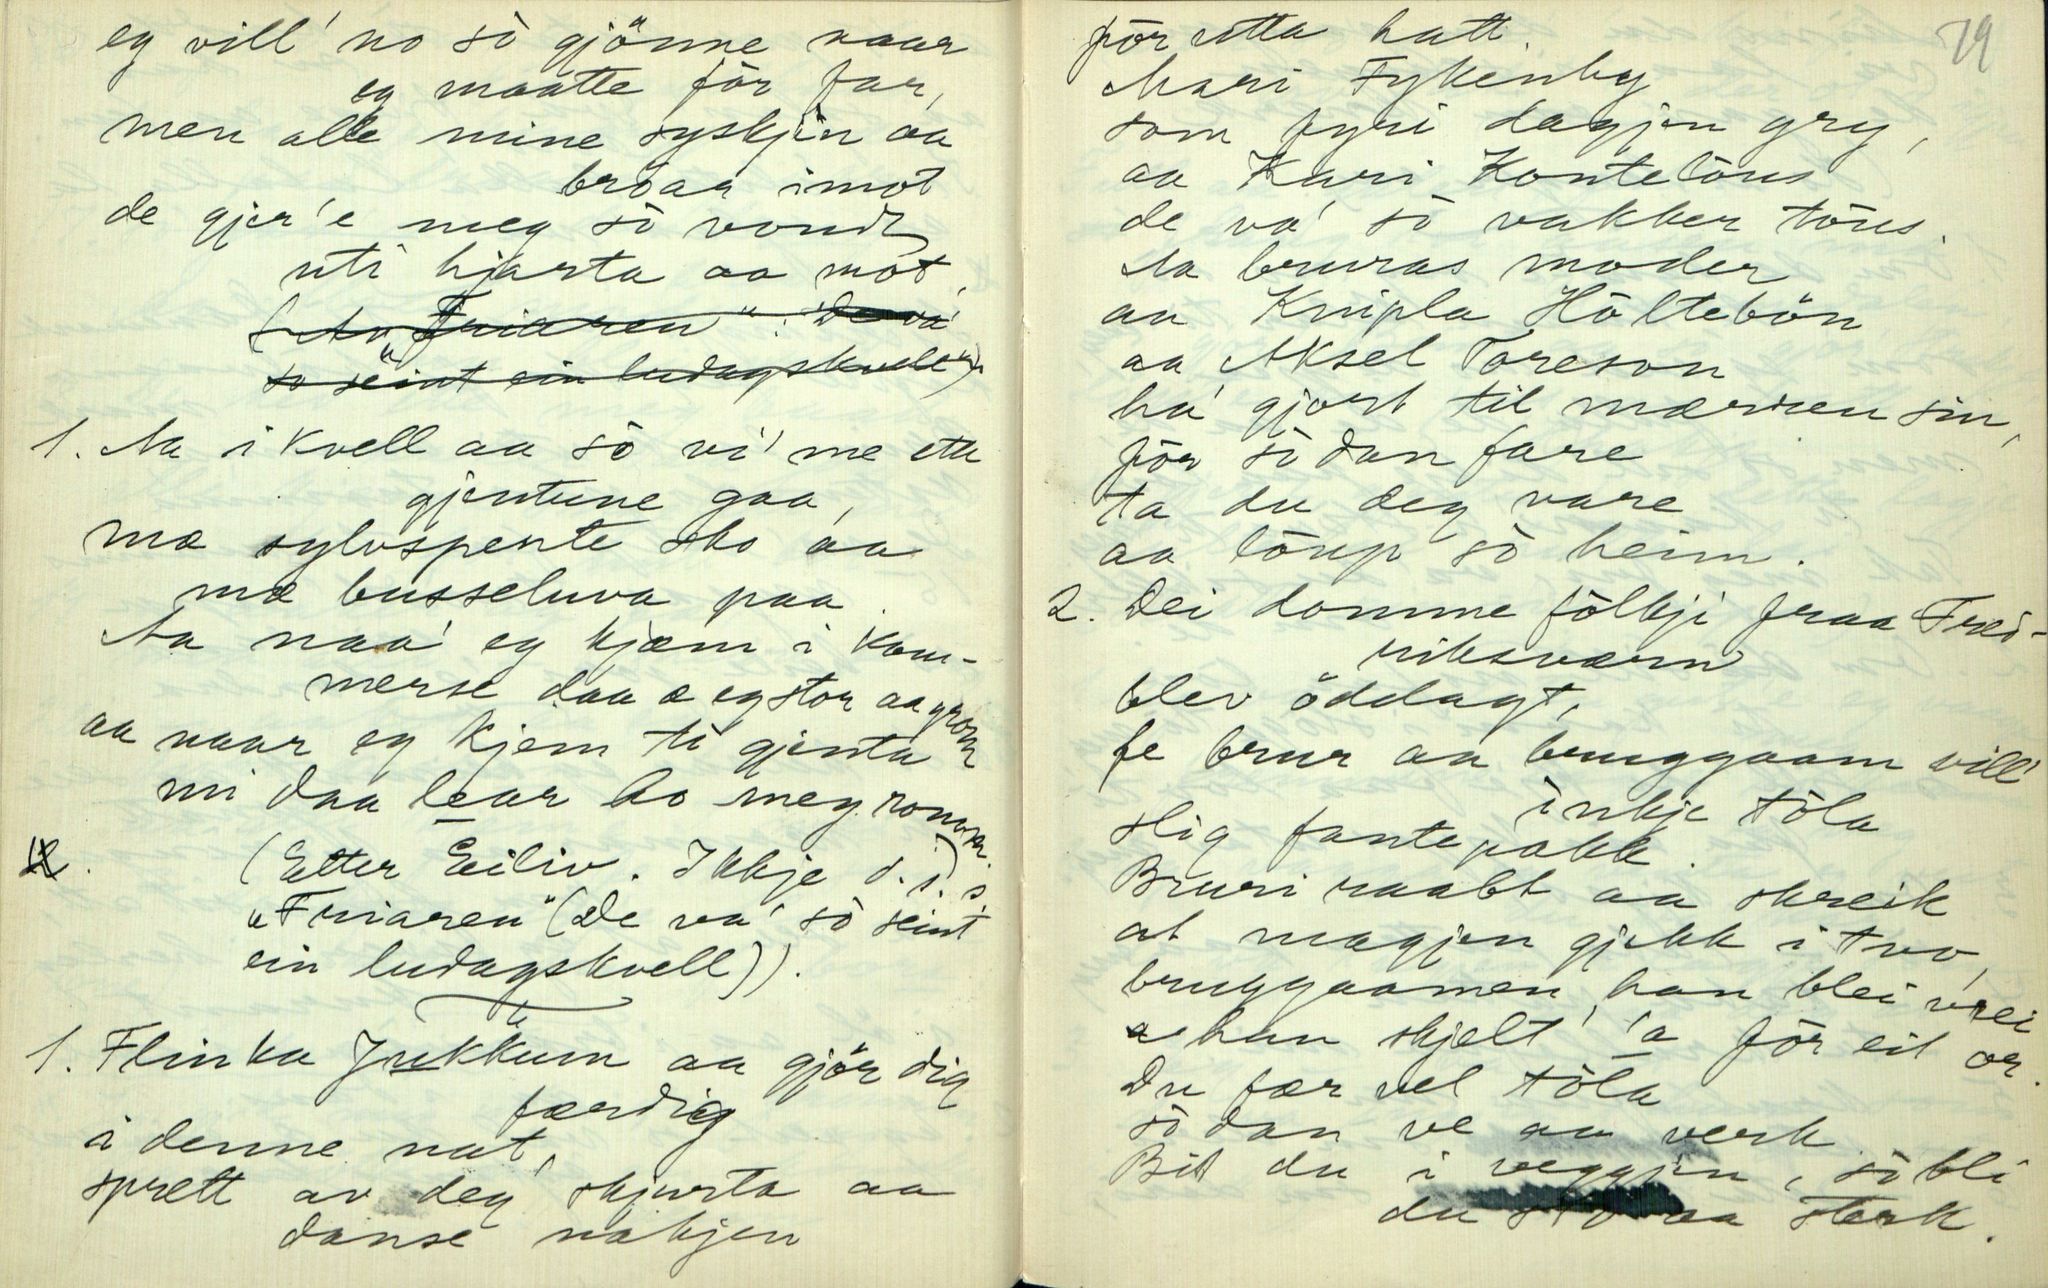 eg vill' no sò gjönne naar
eg maatte för far,
men alle mine syskjin aa
broar imot
de gjer'e meg sò vondt
uti hjarta aa mot.
(Av "Friaren": De va'
so seint ein ludagskvell")
1. Aa i kvell aa sò vi' me ette
gjentune gaa,
mæ sylvspente sko aa
mæ busseluva paa.
Aa naa' eg kjæm i kom-
merse daa æ eg stor aa grom
aa naar eg kjem ti gjenta
mi daa lear ho meg romom.
(Etter Eiliv. Ikkje d.i.)
"Friaren" (De va' sò seint
ein ludagskvell)).
1. Flinka Jukkum aa gjör dig
færdig
i denne nat,
sprett av deg skjurta aa
danse nakjen
79
för utta hatt.
Mari Fykenby
som fyri dagjen gry,
aa Kari Kontelöus
de va' sò vakker töus.
Aa bruras moder
aa Knipla Höltebön
aa Aksel Toreson
ha' gjort til mærren sin,
för sòdan fare
ta du deg vare
aa löup sò heim.
2. Dei domme fölkji fraa Fred-
riksværn
blev öddlagt,
fe brur aa bruggaam vill'
inkje töla
slig fantepakk.
Bruri raabt aa skreik
at magjen gjekk i tvo,
bruggaamen han blei vrei
han skjelt' 'a för eit or.
Du fær vel töla
sòdan ve aa verk
Bit du i veggjen, sò bli
du sto aa sterk.